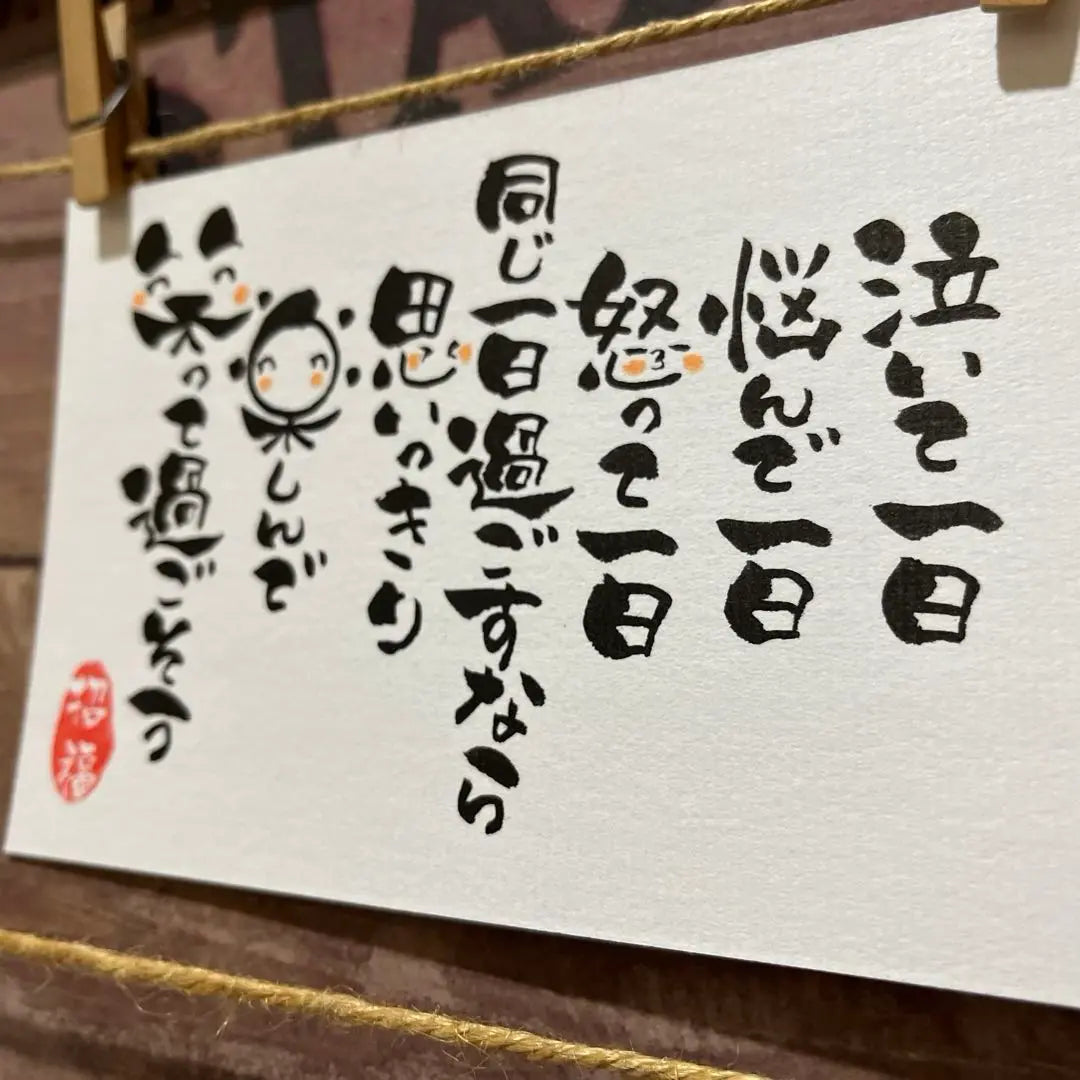 泣いて一日
悩んで一日
怒って一日
同じ一日過ごすなら
思いっきり
楽しんで
笑って過ごそう
招福